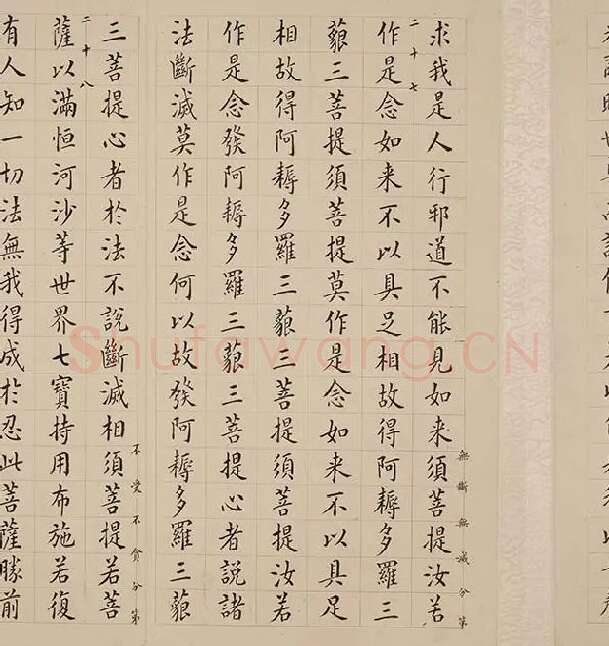 求我是人行邪道不能見如来須菩提汝若
無斷無滅分第
二十七
作是念如来不以具足相故得阿耨多羅三
藐三菩提須菩提莫作是念如来不以具足
相故得阿耨多羅三藐三菩提須菩提汝若
作是念發阿耨多羅三藐三菩提心者說諸
法斷滅莫作是念何以故發阿耨多羅三藐
三菩提心者於法不說斷滅相須菩提若菩
不受不貪分第
二十八
薩以滿恒河沙等世界七寶持用布施若復
有人知一切法無我得成於忍此菩薩勝前
Shufawang.CN